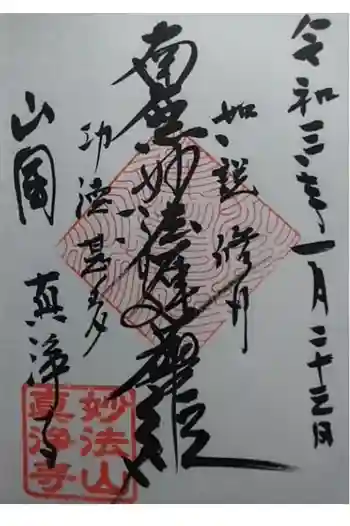 令和三年一月二十三日
如説修行
南無妙法蓮華経
功徳甚多
山国
真浄寺
妙法山
真浄寺